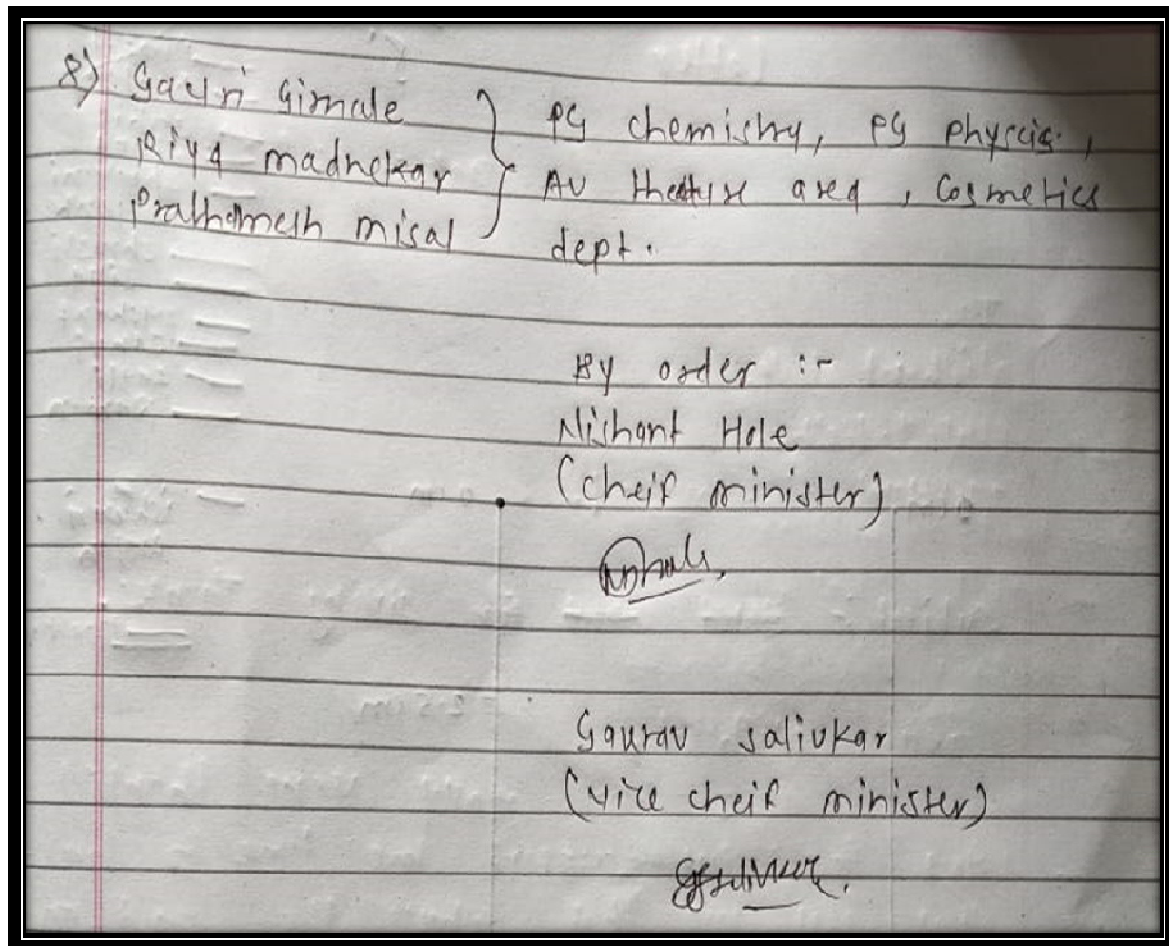 8) Gauri Gimale
Riya madnekar
Prathamesh misal
} PG chemishy, PG physcis,
AV theature area, Cosmetics
dept.
By order :-
Nishant Hole
(cheif minister)
Gaurav salivkar
(vice cheif minister)